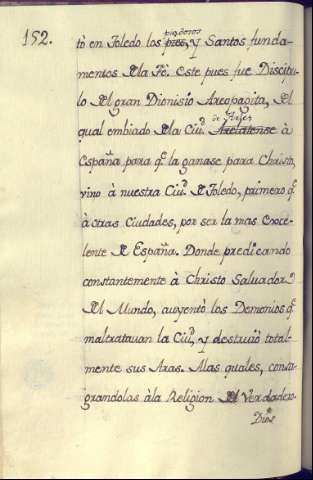 152.
piadosos
tò en Toledo los pres, y Santos funda-
mentos de la Fé. Este pues fue Discipu-
lo del gran Dionisio Areopagita, del
de Arles
qual embiado de la Ciud. Arelatense à
España para qe. la ganase para Christo,
vino à nuestra Ciud. de Toledo, primero qe.
à otras Ciudades, por ser la mas Exce-
lente de España. Donde predicando
constantemente à Christo Salvador
del Mundo, auyentò los Demonios qe.
maltratauan la Ciud., y destruiò total-
mente sus Aras. A las quales, consa-
grandolas à la Religion del Verdadero
Dios